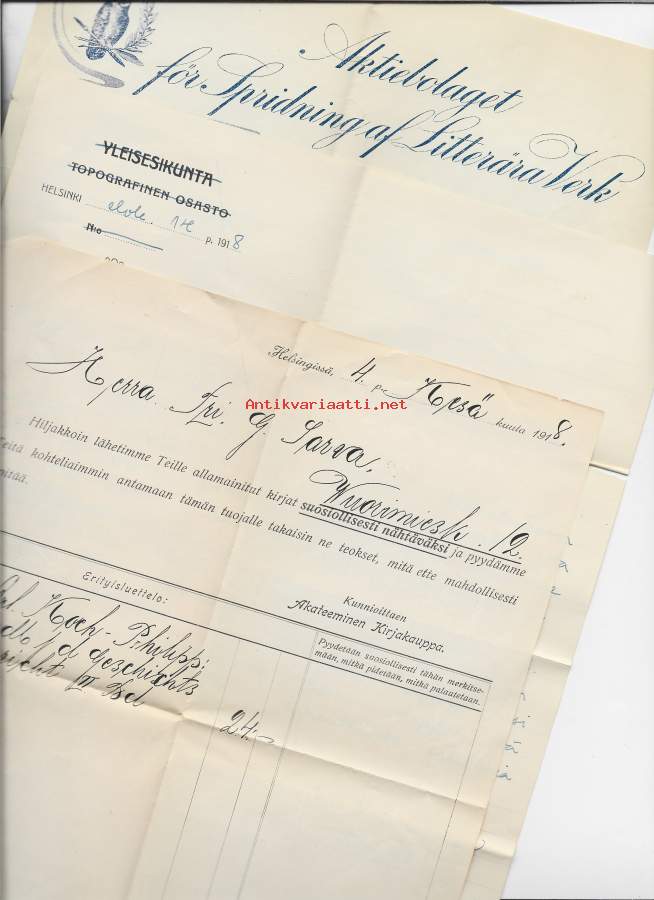 Aktiebolaget
för Spridning af Litterära Verk
YLEISESIKUNTA
TOPOGRAFINEN OSASTO
HELSINKI elok. 14 p. 1918
N:o
Helsingissä, 4 p. Kesä kuuta 1918.
Herra Fri. G. Sarva,
Antikvariaatti.net
Wuorimiesk. 12.
Hiljakkoin lähetimme Teille allamainitut kirjat suosiollisesti nähtäväksi ja pyydämme
Teitä kohteliaimmin antamaan tämän tuojalle takaisin ne teokset, mitä ette mahdollisesti
pitää.
Kunnioittaen
Akateeminen Kirjakauppa.
Erityisluettelo:
Pyydetään suosiollisesti tähän merkitse-
mään, mitkä pidetään, mitkä palautetaan.
Koch-Philipp:
d. Geschichts
III Bd 24:-